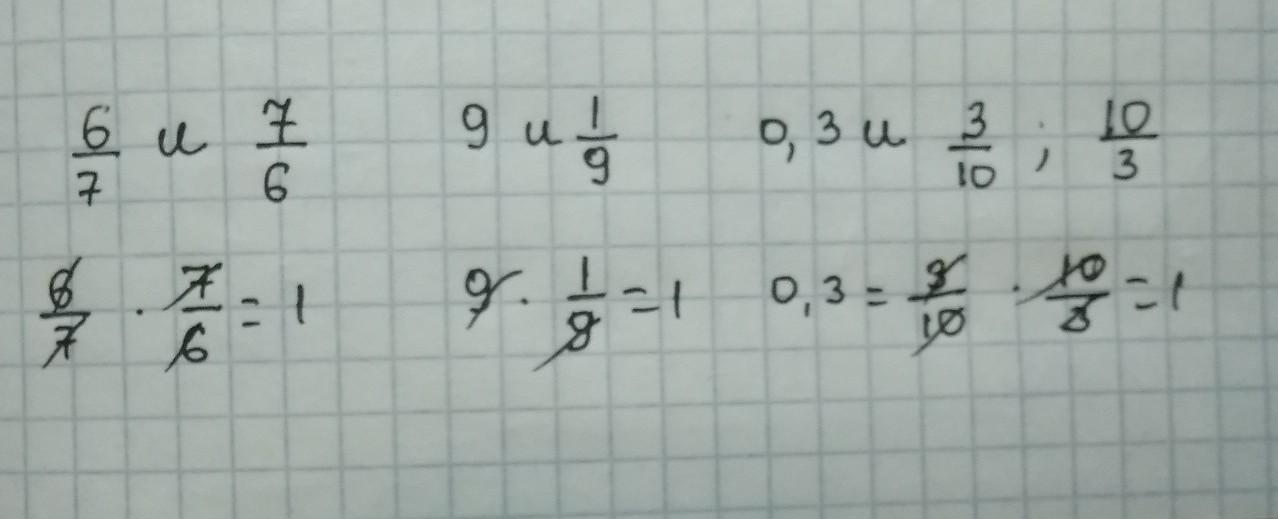 6/7 и 7/6 9 и 1/9 0,3 и 3/10 ; 10/3
6/7 · 7/6 = 1 9 · 1/9 = 1 0,3 = 3/10 · 10/3 = 1